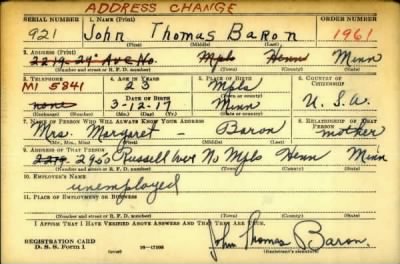 ADDRESS CHANGE
SERIAL NUMBER 1. NAME (Print) ORDER NUMBER
921 John Thomas Baron 1961
(First) (Middle) (Last)
2. ADDRESS (Print)
2219-29" Ave No. Mpls Henn Minn
(Number and street or R. F. D. number) (Town) (County) (State)
3. TELEPHONE 4. AGE IN YEARS 5. PLACE OF BIRTH 6. COUNTRY OF CITIZENSHIP
MI 5841 23 Mpls
none DATE OF BIRTH Minn U.S.A.
3-12-17
(Exchange) (Number) (Mo.) (Day) (Yr.) (State or country)
7. NAME OF PERSON WHO WILL ALWAYS KNOW YOUR ADDRESS 8. RELATIONSHIP OF THAT PERSON
Mrs. Margaret Baron mother
(Mr., Mrs., Miss) (First) (Middle) (Last)
9. ADDRESS OF THAT PERSON
2219- 2950 Russell Ave No Mpls Henn Minn
(Number and street or R. F. D. number) (Town) (County) (State)
10. EMPLOYER'S NAME
unemployed
11. PLACE OF EMPLOYMENT OR BUSINESS
(Number and street or R. F. D. number) (Town) (County) (State)
I AFFIRM THAT I HAVE VERIFIED ABOVE ANSWERS AND THAT THEY ARE TRUE.
REGISTRATION CARD
D. S. S. Form 1 (over) 16-17105
John Thomas Baron.
(Registrant's signature)